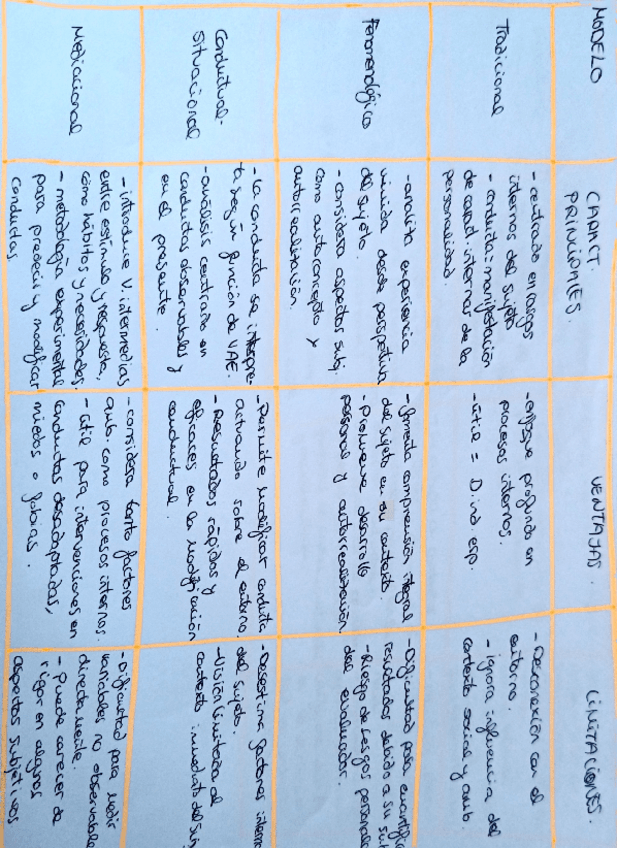 MODELO
CARACT.
PRINCIPALES.
VENTAJAS.
LIMITACIONES.
Tradicional
- centrado en rasgos
internos del sujeto
- conducta = manifestación
de caract. internas de la
personalidad.
- enfoque profundo en
procesos internos.
- útil = D. ind esp.
- Desconexión con el
entorno.
- ignora influencia del
contexto social y amb.
Fenomenológico
- analiza experiencia
vivida desde perspectiva
del sujeto.
- considera aspectos subj.
como autoconcepto y
autorrealización.
- fomenta comprensión integral
del sujeto en su contexto.
- Promueve desarrollo
personal y autorrealización.
- Dificultad para
resultados debido a su
- Riesgo de sesgos
del evaluador.
Conductual-
Situacional
- La conducta se interpre-
ta según función de VAE.
- análisis centrado en
conductas observables y
en el presente.
- Permite modificar conducta
actuando sobre el entorno.
- Resultados rápidos y
eficaces en la modificación
conductual.
- Desestima factores
del sujeto.
- Visión limitada al
contexto inmediato del
Mediacional
- introduce V. intermedias
entre estímulo y respuesta,
como hábitos y necesidades.
- metodología experimental
para predecir y modificar
conductas
- considera tanto factores
amb. como procesos internos.
- útil para intervenciones en
conductas desadaptadas,
miedos o fobias.
- Dificultad para medir
variables no
directamente.
- puede carecer de
rigor en algunos
aspectos subjetivos